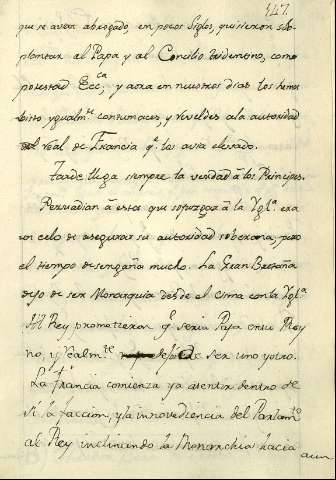 547
que se avian abrogado, en pocos siglos quisieron su-
plantar al Papa y al Concilio tridentino, como
potestad Ecc.ca y aora en nuestros dias los hemos
visto ygualm.te contumaces, y reveldes a la autoridad
real de Francia q.e los avia elevado.
Tarde llega siempre la verdad â los Principes.
Persuadian â estos que sojuzgar â la Ygl.a era
un celo de asegurar su autoridad soberana, pero
el tiempo desengaña mucho. La Gran Bretaña
dejo de ser Monarquia desde el cisma con la Ygl.a
Al Rey prometieron q.e seria Papa en su Rey
no, y realm.te dejó de ser uno y otro.
La Francia comienza ya a sentir dentro de
si la faccion, y la innovediencia del Parlam.to
al Rey inclinando la Monarchia hacia
aun